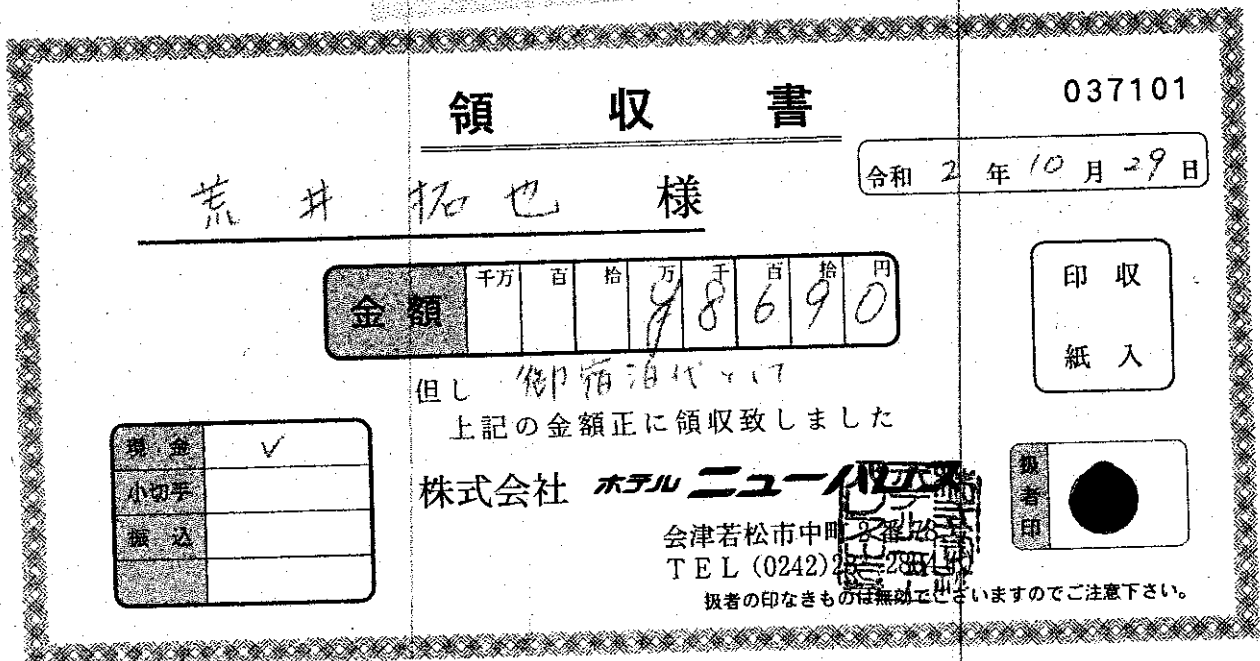 037101
領収書
令和 2 年 10 月 29 日
荒井拓也 様
金額 千万 百 拾 万 千 百 拾 円
98690
但し 御宿泊代として
上記の金額正に領収致しました
印収
紙入
現金 ✓
小切手
振込
株式会社 ホテル ニューパレス
扱者印
会津若松市中町2番78号
TEL (0242)
扱者の印なきものは無効でございますのでご注意下さい。